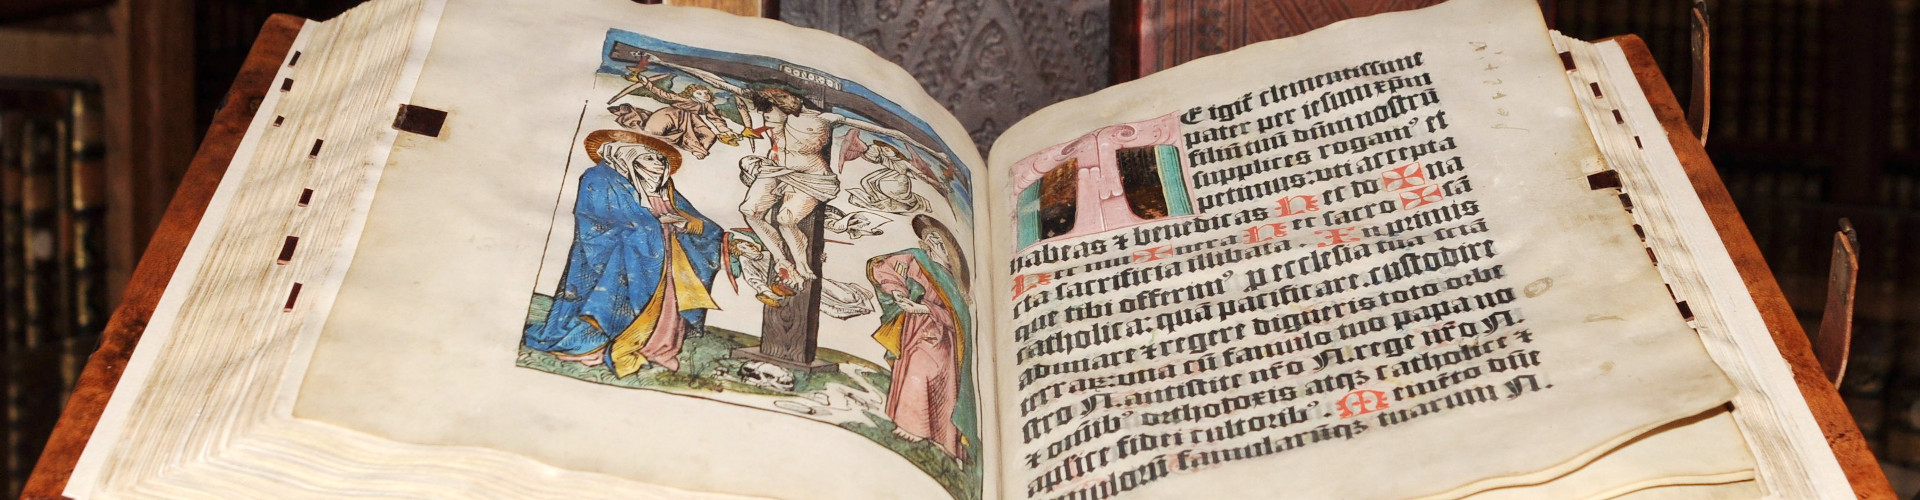 TE igit᷑ clementissime
pater per iesum xp̄m
filiū tuū dn̄m nostrū
supplices rogam⁹ et
petimus: vti accepta
habeas ⁊ benedicas Hec do ✠ na
Hec mu ✠ nera Hec sacro ✠ sā
cta sacrificia illibata. In primis
que tibi offerim⁹ p ecclesia tua scā
catholica: quā pacificare. custodire
adunare ⁊ regere digneris toto orbe
terrarum vna cū famulo tuo papa no
stro N. antistite nr̄o N. rege nr̄o N.
⁊ om̄ib⁹ orthodoxis atqꝫ catholice ⁊
aplice fidei cultorib⁹. Memēto dn̄e
famulorū famularūqꝫ tuarum N.